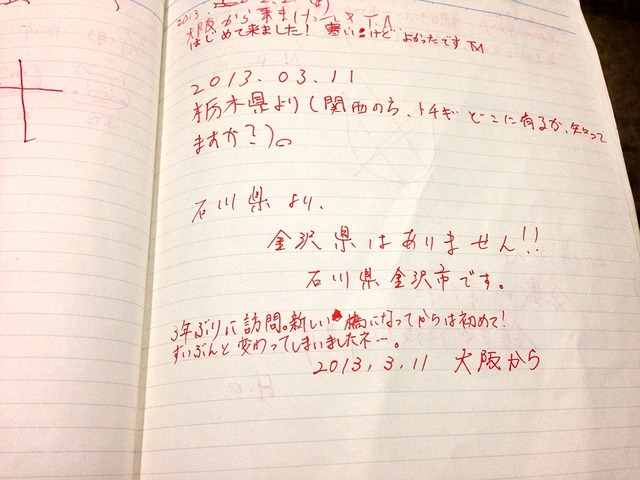 2013
大阪から来ました T.A
はじめて来ました! 寒いけど よかったです
2013.03.11
栃木県より(関西の方、トチギ どこに有るか、知って
ますか?)。
石川県より、
金沢県はありません!!
石川県金沢市です。
3年ぶりに訪問。新しい橋になってからは初めて!
ずいぶんと変わってしまいましたネー。
2013.3.11 大阪から